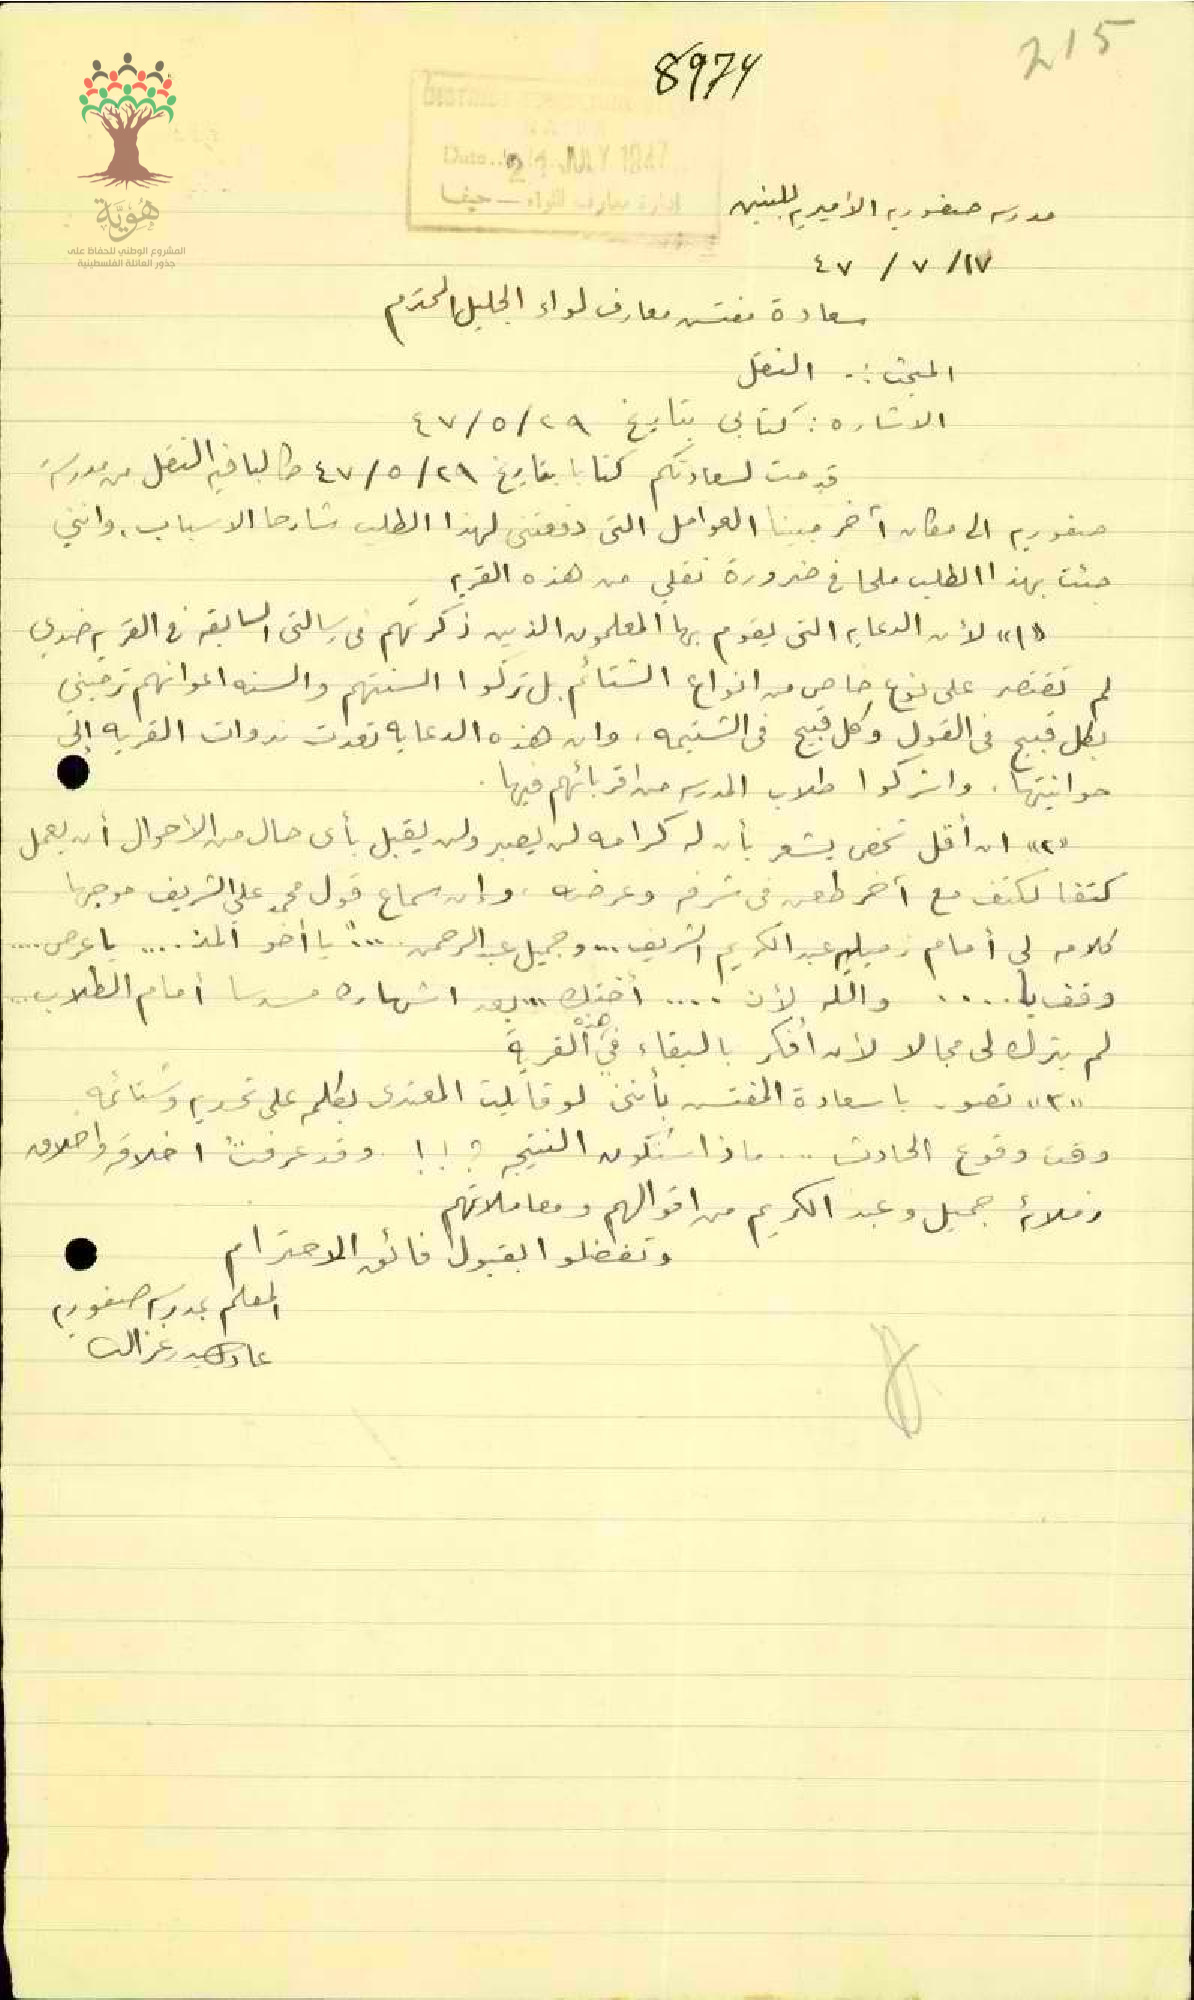 215
8974
هُوِيَّة
المشروع الوطني للحفاظ على
جذور العائلة الفلسطينية
Date 21 JULY 1947
ادارة معارف اللواء – حيفا
مدرسه صفوريه الأميريه للبنين
١٧ / ٧ / ٤٧
سعادة مفتش معارف لواء الجليل المحترم
المبحث :. النقل
الاشاره : كتابي بتاريخ ٢٩ / ٥ / ٤٧
قدمت لسعادتكم كتابا بتاريخ ٢٩ / ٥ / ٤٧ طالبا فيه النقل من مدرسة
صفوريه الى مكان أخر مبينا العوامل التى دفعتنى لهذا الطلب شارحا الاسباب. وانني
جئت بهذا الطلب ملحا في ضرورة نقلي من هذه القريه
«١» لأن الدعايه التى يقوم بها المعلمون الذين ذكرتهم فى رسالتى السابقه في القريه ضدي
لم تقتصر على نوع خاص من انواع الشتائم بل تركوا السنتهم والسنه اعوانهم ترميني
بكل قبيح فى القول وكل قبيح فى الشتيمه. وان هذه الدعايه تعدت ندوات القريه إلى
حوانيتها. واشركوا طلاب المدرسه من اقربائهم فيها.
«٢» ان أقل شخص يشعر بأن له كرامه لن يصبر ولن يقبل بأى حال من الأحوال أن يعمل
كتفا لكتف مع أخر طعن فى شرفه وعرضه، وإن سماع قول محمد علي الشريف موجها
كلامه لي أمام زميليه عبد الكريم الشريف ... وجميل عبد الرحمن .... " يا أخو المذ .... يا عرص ....
وقف يا ..... والله لأن .... أخذك ... بعد اشهاره مسدسا أمام الطلاب ...
لم يترك لى مجالا لأن أفكر بالبقاء في هذه القرية
«٣» تصور يا سعادة المفتش بأننى لو قابلت المعتدى بكلمه على تحديه وشتائمه
وقت وقوع الحادث ... ماذا ستكون النتيجه ؟ ! ! . وقد عرفت اخلاقه واخلاق
زملائه جميل وعبد الكريم من اقوالهم ومعاملاتهم
وتفضلوا بقبول فائق الاحترام
المعلم بمدرسه صفوريه
غزالت